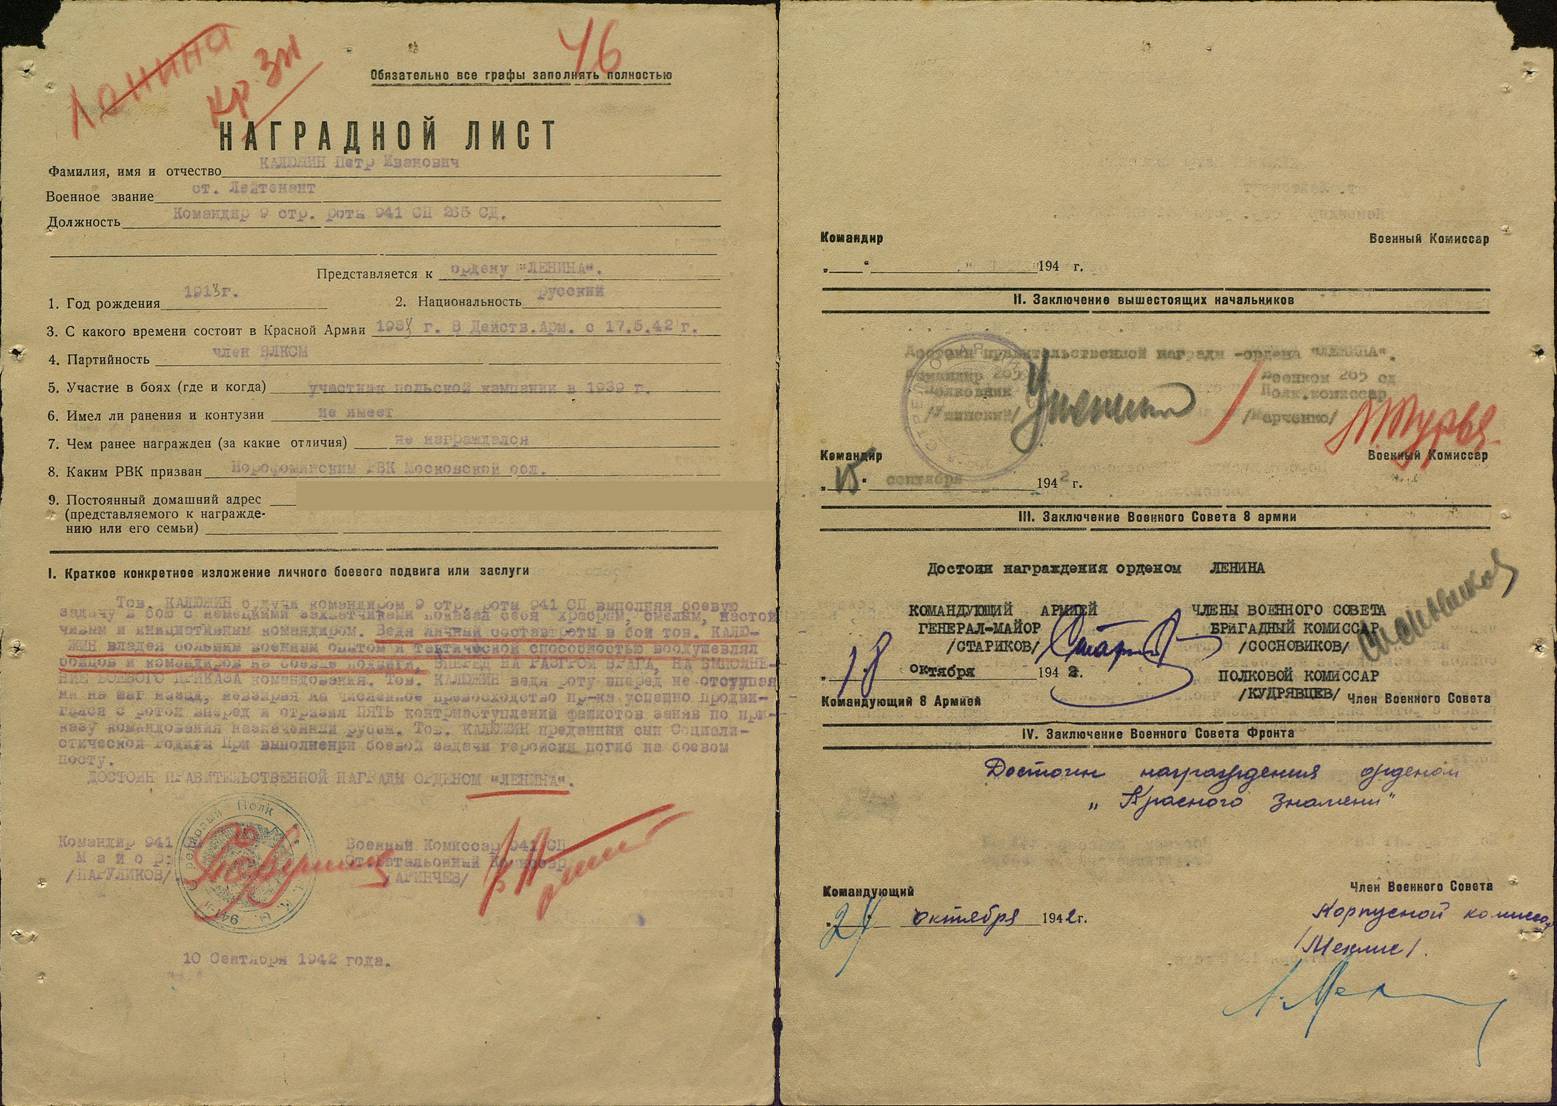 Ленина
Кр. Зн
46
Обязательно все графы заполнять полностью
НАГРАДНОЙ ЛИСТ
Фамилия, имя и отчество КАЛЮЖИН Петр Иванович
Военное звание ст. Лейтенант
Должность Командир 9 стр. роты 941 СП 265 СД.
Представляется к ордену "ЛЕНИНА".
1. Год рождения 1913г. 2. Национальность русский
3. С какого времени состоит в Красной Армии г. В Действ.Арм. с 17.5.42 г.
4. Партийность член ВЛКСМ
5. Участие в боях (где и когда) участник польской кампании в 1939 г.
6. Имел ли ранения и контузии не имеет
7. Чем ранее награжден (за какие отличия) не награждался
8. Каким РВК призван Норофоминским РВК Московской обл.
9. Постоянный домашний адрес
(представляемого к награжде-
нию или его семьи)
I. Краткое конкретное изложение личного боевого подвига или заслуги
Тов. КАЛЮЖИН будучи командиром 9 стр. роты 941 СП выполняя боевую
задачу в бою с немецкими захватчиками показал себя храбрым, смелым, настой
чивым и инициативным командиром. Ведя личный состав роты в бой тов. КАЛЮ-
ЖИН владея большим военным опытом и тактической способностью воодушевлял
бойцов и командиров на боевые подвиги. ВПЕРЕД НА РАЗГРОМ ВРАГА, НА ВЫПОЛНЕ-
НИЕ БОЕВОГО ПРИКАЗА командования. Тов. КАЛЮЖИН ведя роту вперед не отступая
ни на шаг назад, невзирая на численное превосходство пр-ка успешно продви-
гался с ротой вперед и отразил ПЯТЬ контрнаступлений фашистов заняв по при-
казу командования назначенный рубеж. Тов. КАЛЮЖИН преданный сын Социали-
стической родины При выполнении боевой задачи геройски погиб на боевом
посту.
ДОСТОИН ПРАВИТЕЛЬСТВЕННОЙ НАГРАДЫ ОРДЕНОМ "ЛЕНИНА".
Командир 941 Военный Комиссар 941 СП
Майор:
/ПАГУЛИКОВ/ /ГАРИНЧЕВ/
10 Сентября 1942 года.
Командир Военный Комиссар
"___" 194 г.
II. Заключение вышестоящих начальников
Достоин правительственной награды -ордена "ЛЕНИНА".
Командир 265 Военком 265 сд
Полковник Полк.комиссар
/Ушинский/ /Марченко/
Командир Военный Комиссар
"15" сентября 1942 г.
III. Заключение Военного Совета 8 армии
Достоин награждения орденом ЛЕНИНА
КОМАНДУЮЩИЙ АРМИЕЙ ЧЛЕНЫ ВОЕННОГО СОВЕТА
ГЕНЕРАЛ-МАЙОР БРИГАДНЫЙ КОМИССАР
/СТАРИКОВ/ /СОСНОВИКОВ/
18 октября 1942 г. ПОЛКОВОЙ КОМИССАР
/КУДРЯВЦЕВ/
Командующий 8 Армией Член Военного Совета
IV. Заключение Военного Совета Фронта
Достоин награждения орденом
"Красного Знамени"
Командующий Член Военного Совета
"24" октября 1942 г. Корпусной комиссар
/Мехлис/.